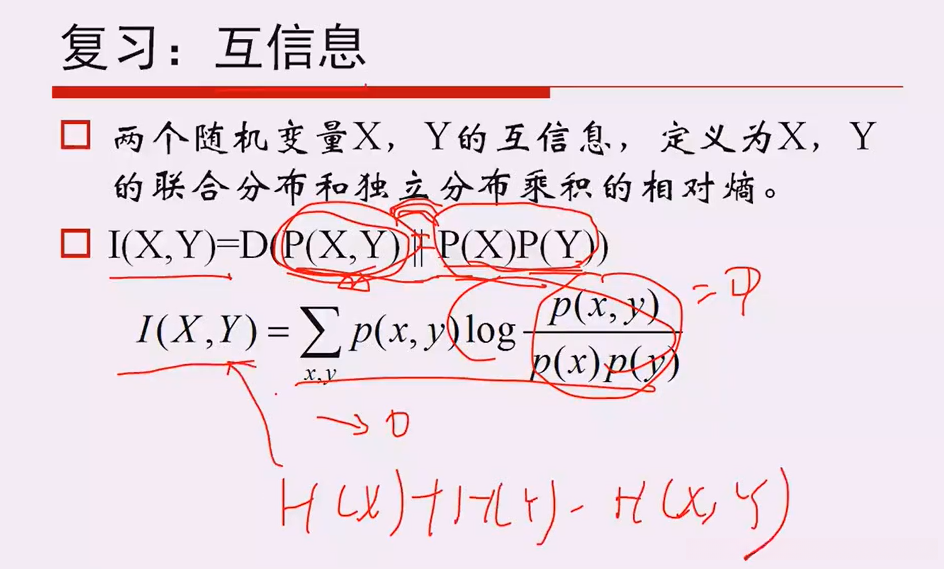 复习：互信息
两个随机变量X，Y的互信息，定义为X，Y
的联合分布和独立分布乘积的相对熵。
I(X,Y)=D(P(X,Y) || P(X)P(Y))
I(X,Y) = ∑x,y p(x,y) log p(x,y) / p(x)p(y)
→ 0
H(X)+H(Y)- H(X,Y)